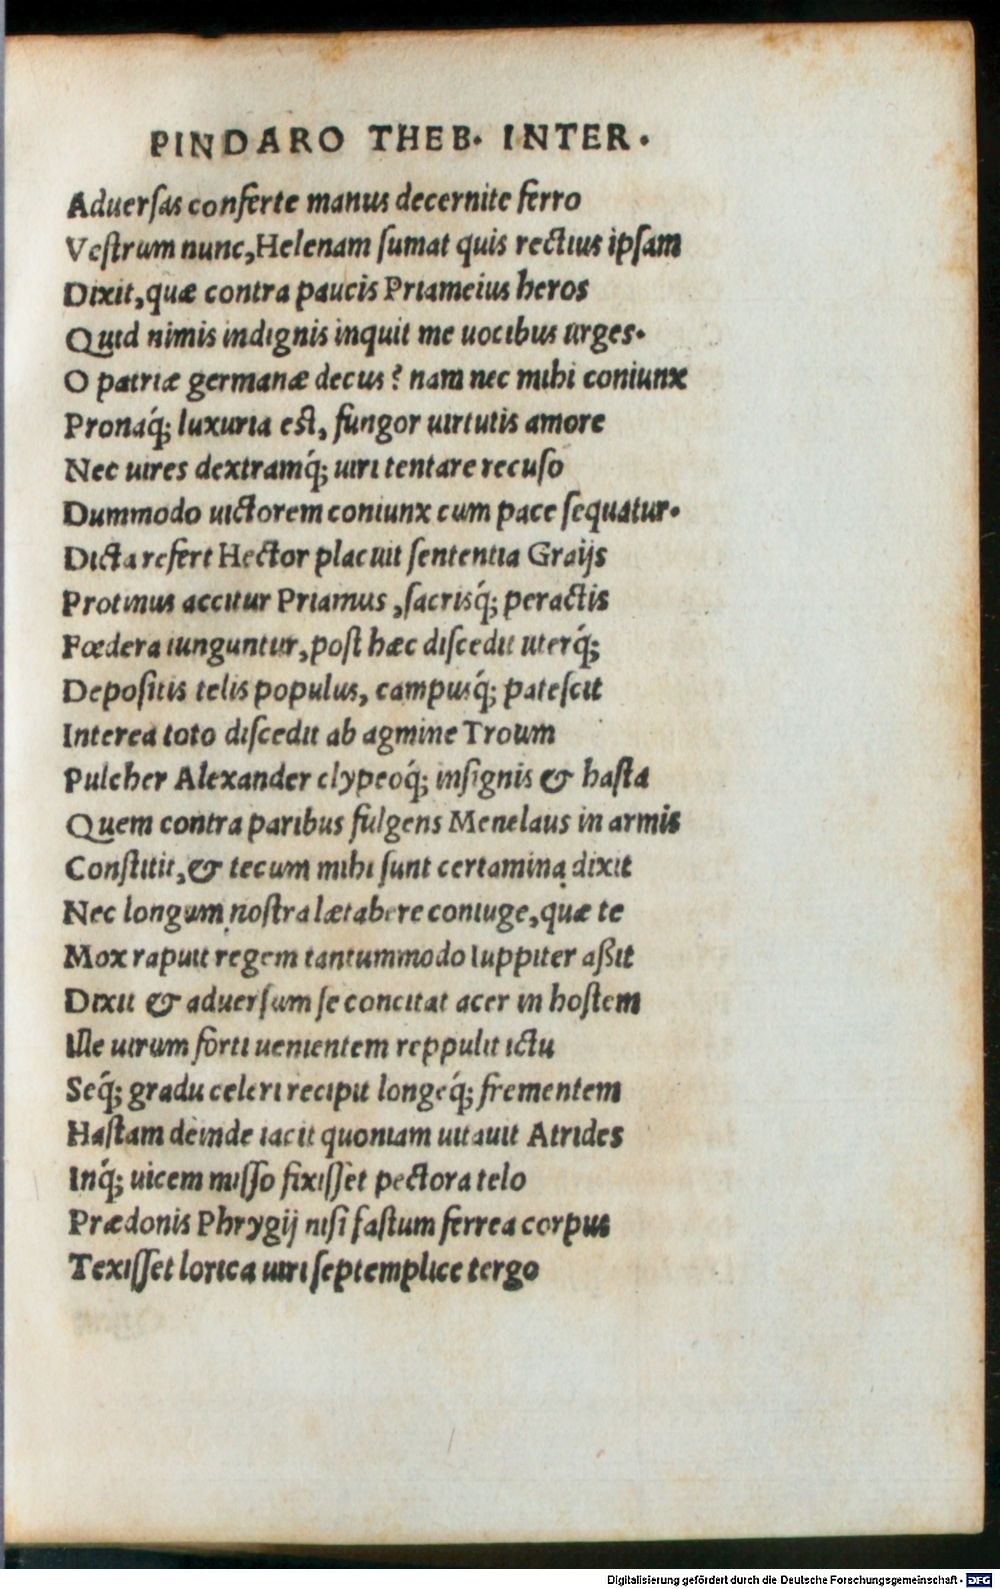 PINDARO THEB. INTER.
Aduersas conferte manus decernite ferro
Vestrum nunc, Helenam sumat quis rectius ipsam
Dixit, quæ contra paucis Priameius heros
Quid nimis indignis inquit me uocibus urges.
O patriæ germanæ decus? nam nec mihi coniunx
Pronaq́; luxuria est, fungor uirtutis amore
Nec uires dextramq́; uiri tentare recuso
Dummodo uictorem coniunx cum pace sequatur.
Dicta refert Hector placuit sententia Graijs
Protinus accitur Priamus, sacrisq́; peractis
Fœdera iunguntur, post hæc discedit uterq́;
Depositis telis populus, campusq́; patescit
Interea toto discedit ab agmine Troum
Pulcher Alexander clypeoq́; insignis & hasta
Quem contra paribus fulgens Menelaus in armis
Constitit, & tecum mihi sunt certamina dixit
Nec longum nostra lætabere coniuge, quæ te
Mox rapuit regem tantummodo Iuppiter aßit
Dixit & aduersum se concitat acer in hostem
Ille uirum forti uenientem reppulit ictu
Seq́; gradu celeri recipit longeq́; frementem
Hastam deinde iacit quoniam uitauit Atrides
Inq́; uicem misso fixisset pectora telo
Prædonis Phrygij nisi fastum ferrea corpus
Texisset lorica uiri septemplice tergo
Digitalisierung gefördert durch die Deutsche Forschungsgemeinschaft - DFG